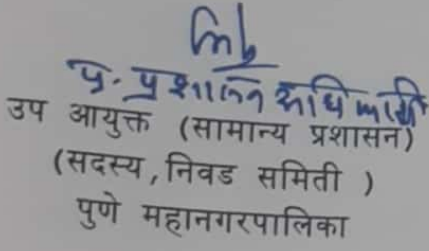 प्र. प्रशासन अधिकारी
उप आयुक्त (सामान्य प्रशासन)
(सदस्य , निवड समिती )
पुणे महानगरपालिका